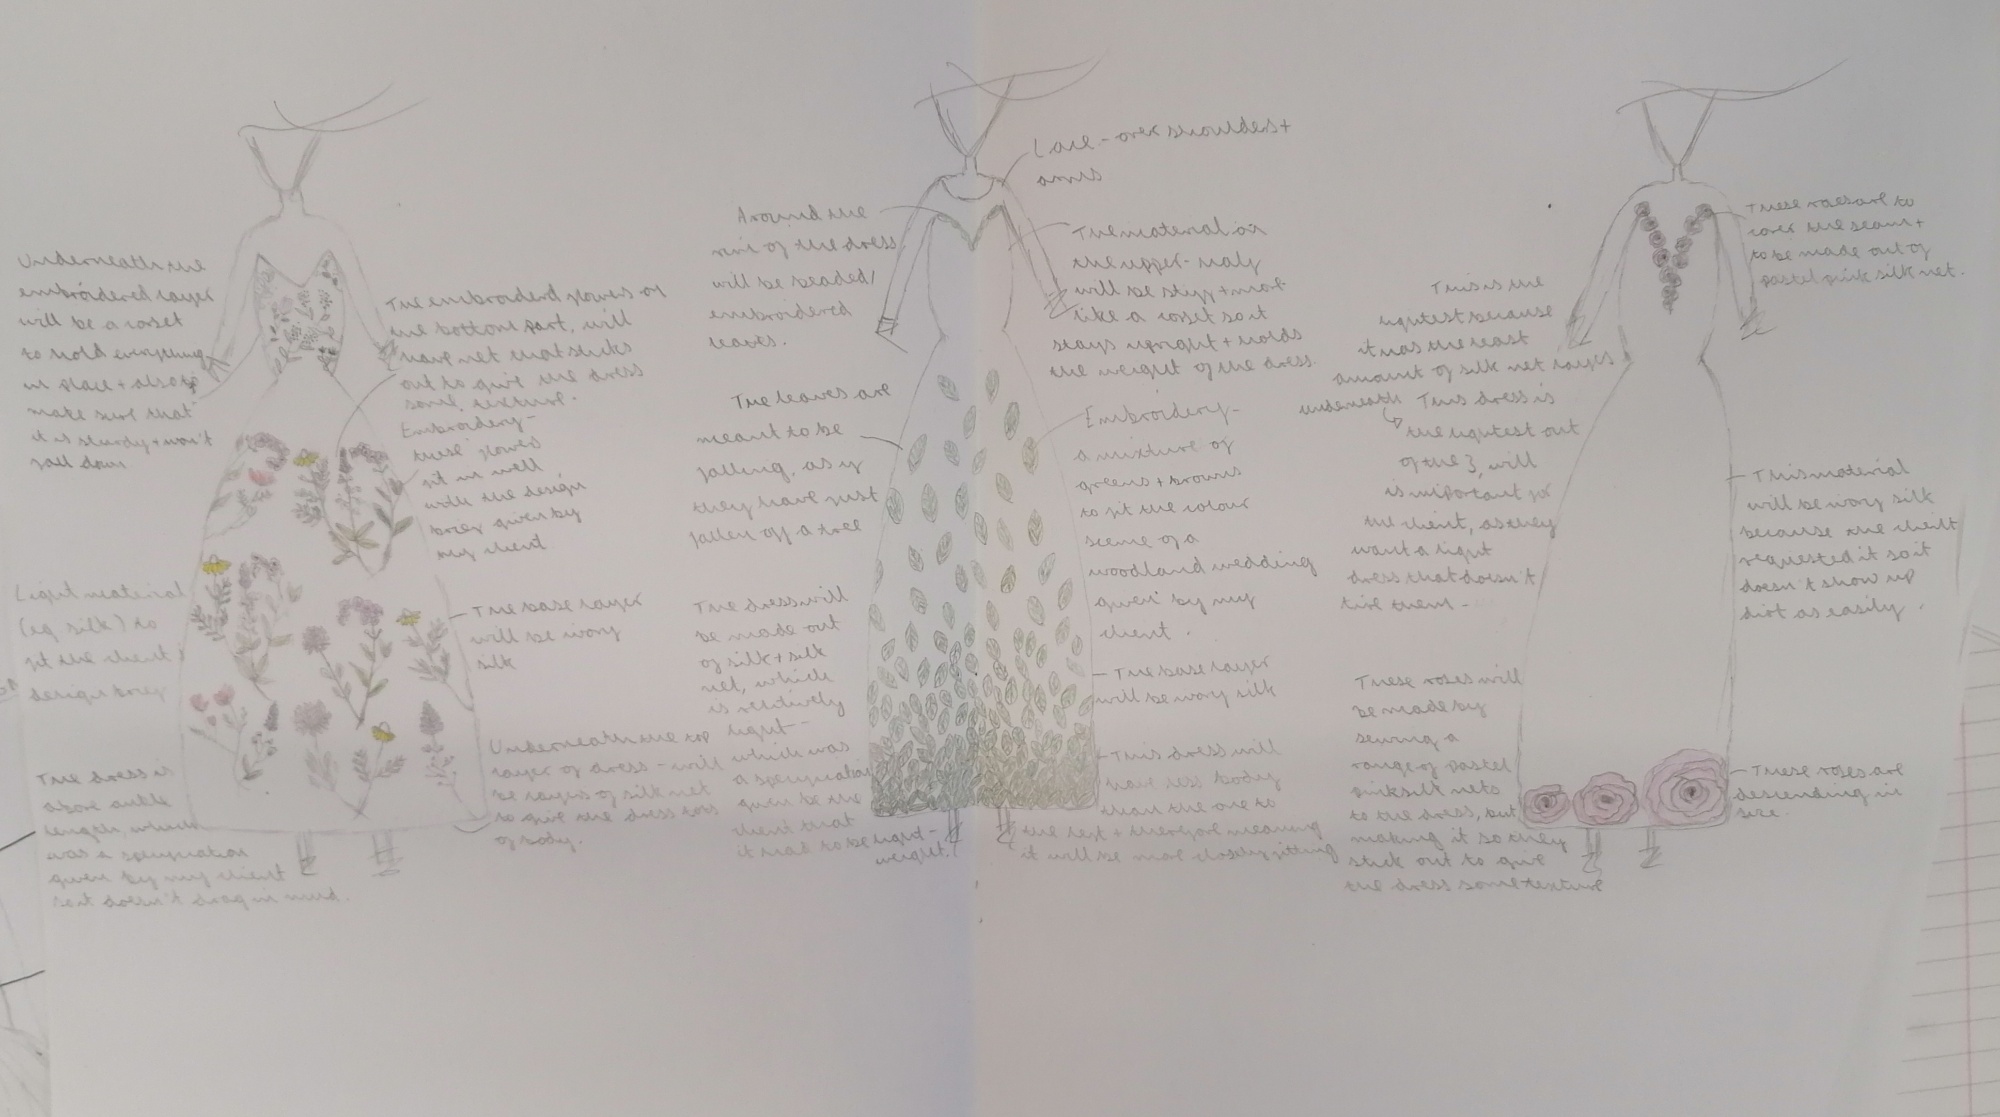 Underneath the
embroidered layer
will be a corset
to hold everything
in place + also to
make sure that
it is sturdy + won't
fall down
The embroiderd flowers on
the bottom part, will
have net that sticks
out to give the dress
some texture.
Embroidery -
these flowers
fit in well
with the design
brief given by
my client
Light material
(eg silk) to
fit the client
design brief
The base layer
will be ivory
silk
The dress is
above ankle
length, which
was a specification
given by my client
so it doesn't drag in mud.
Underneath the top
layer of dress - will
be layers of silk net
to give the dress lots
of body.
Lace - over shoulders +
arms
Around the
rim of the dress
will be beaded/
embroidered
leaves.
The material on
the upper-half
will be stiff + mot
like a corset so it
stays upright + holds
the weight of the dress.
The leaves are
meant to be
falling, as if
they have just
fallen off a tree
Embroidery -
a mixture of
greens + browns
to fit the colour
sceme of a
woodland wedding
given by my
client.
The dress will
be made out
of silk + silk
net, which
is relitively
light -
which was
a specification
given be the
client that
it had to be light-
weight.
The base layer
will be ivory silk
This dress will
have less body
than the one to
the left + therefore meaning
it will be more closely fitting
These roses are to
cover the seam +
to be made out of
pastel pink silk net.
This is the
lightest because
it has the least
amount of silk net layers
underneath
This dress is
the lightest out
of the 3, will
is important for
the client, as they
want a light
dress that doesn't
tire them -
This material
will be ivory silk
because the client
requested it so it
doesn't show up
dirt as easily.
These roses will
be made by
sewing a
range of pastel
pink silk nets
to the dress, but
making it so they
stick out to give
the dress some texture
These roses are
descending in
size.